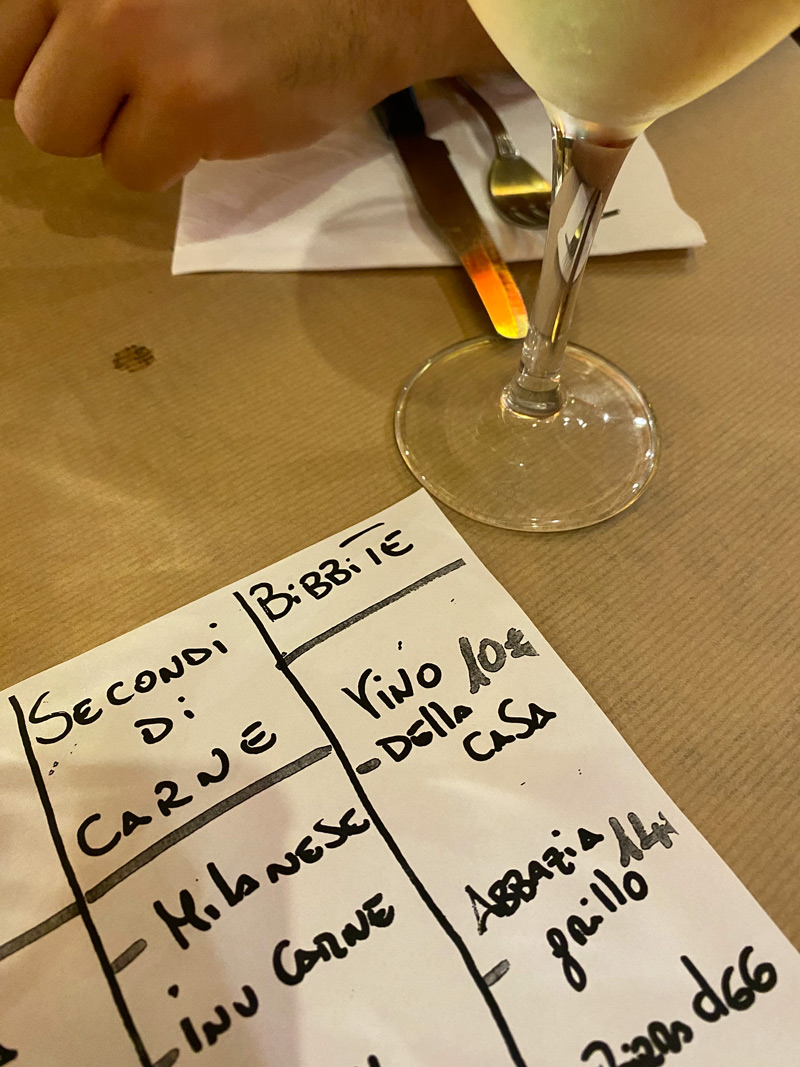 SECONDI
Di
CARNE
MilaNESE
iNV CARNE
BiBBiTE
ViNO 10€
DEllA
CASA
ABBAZiA 14
grillo
d66